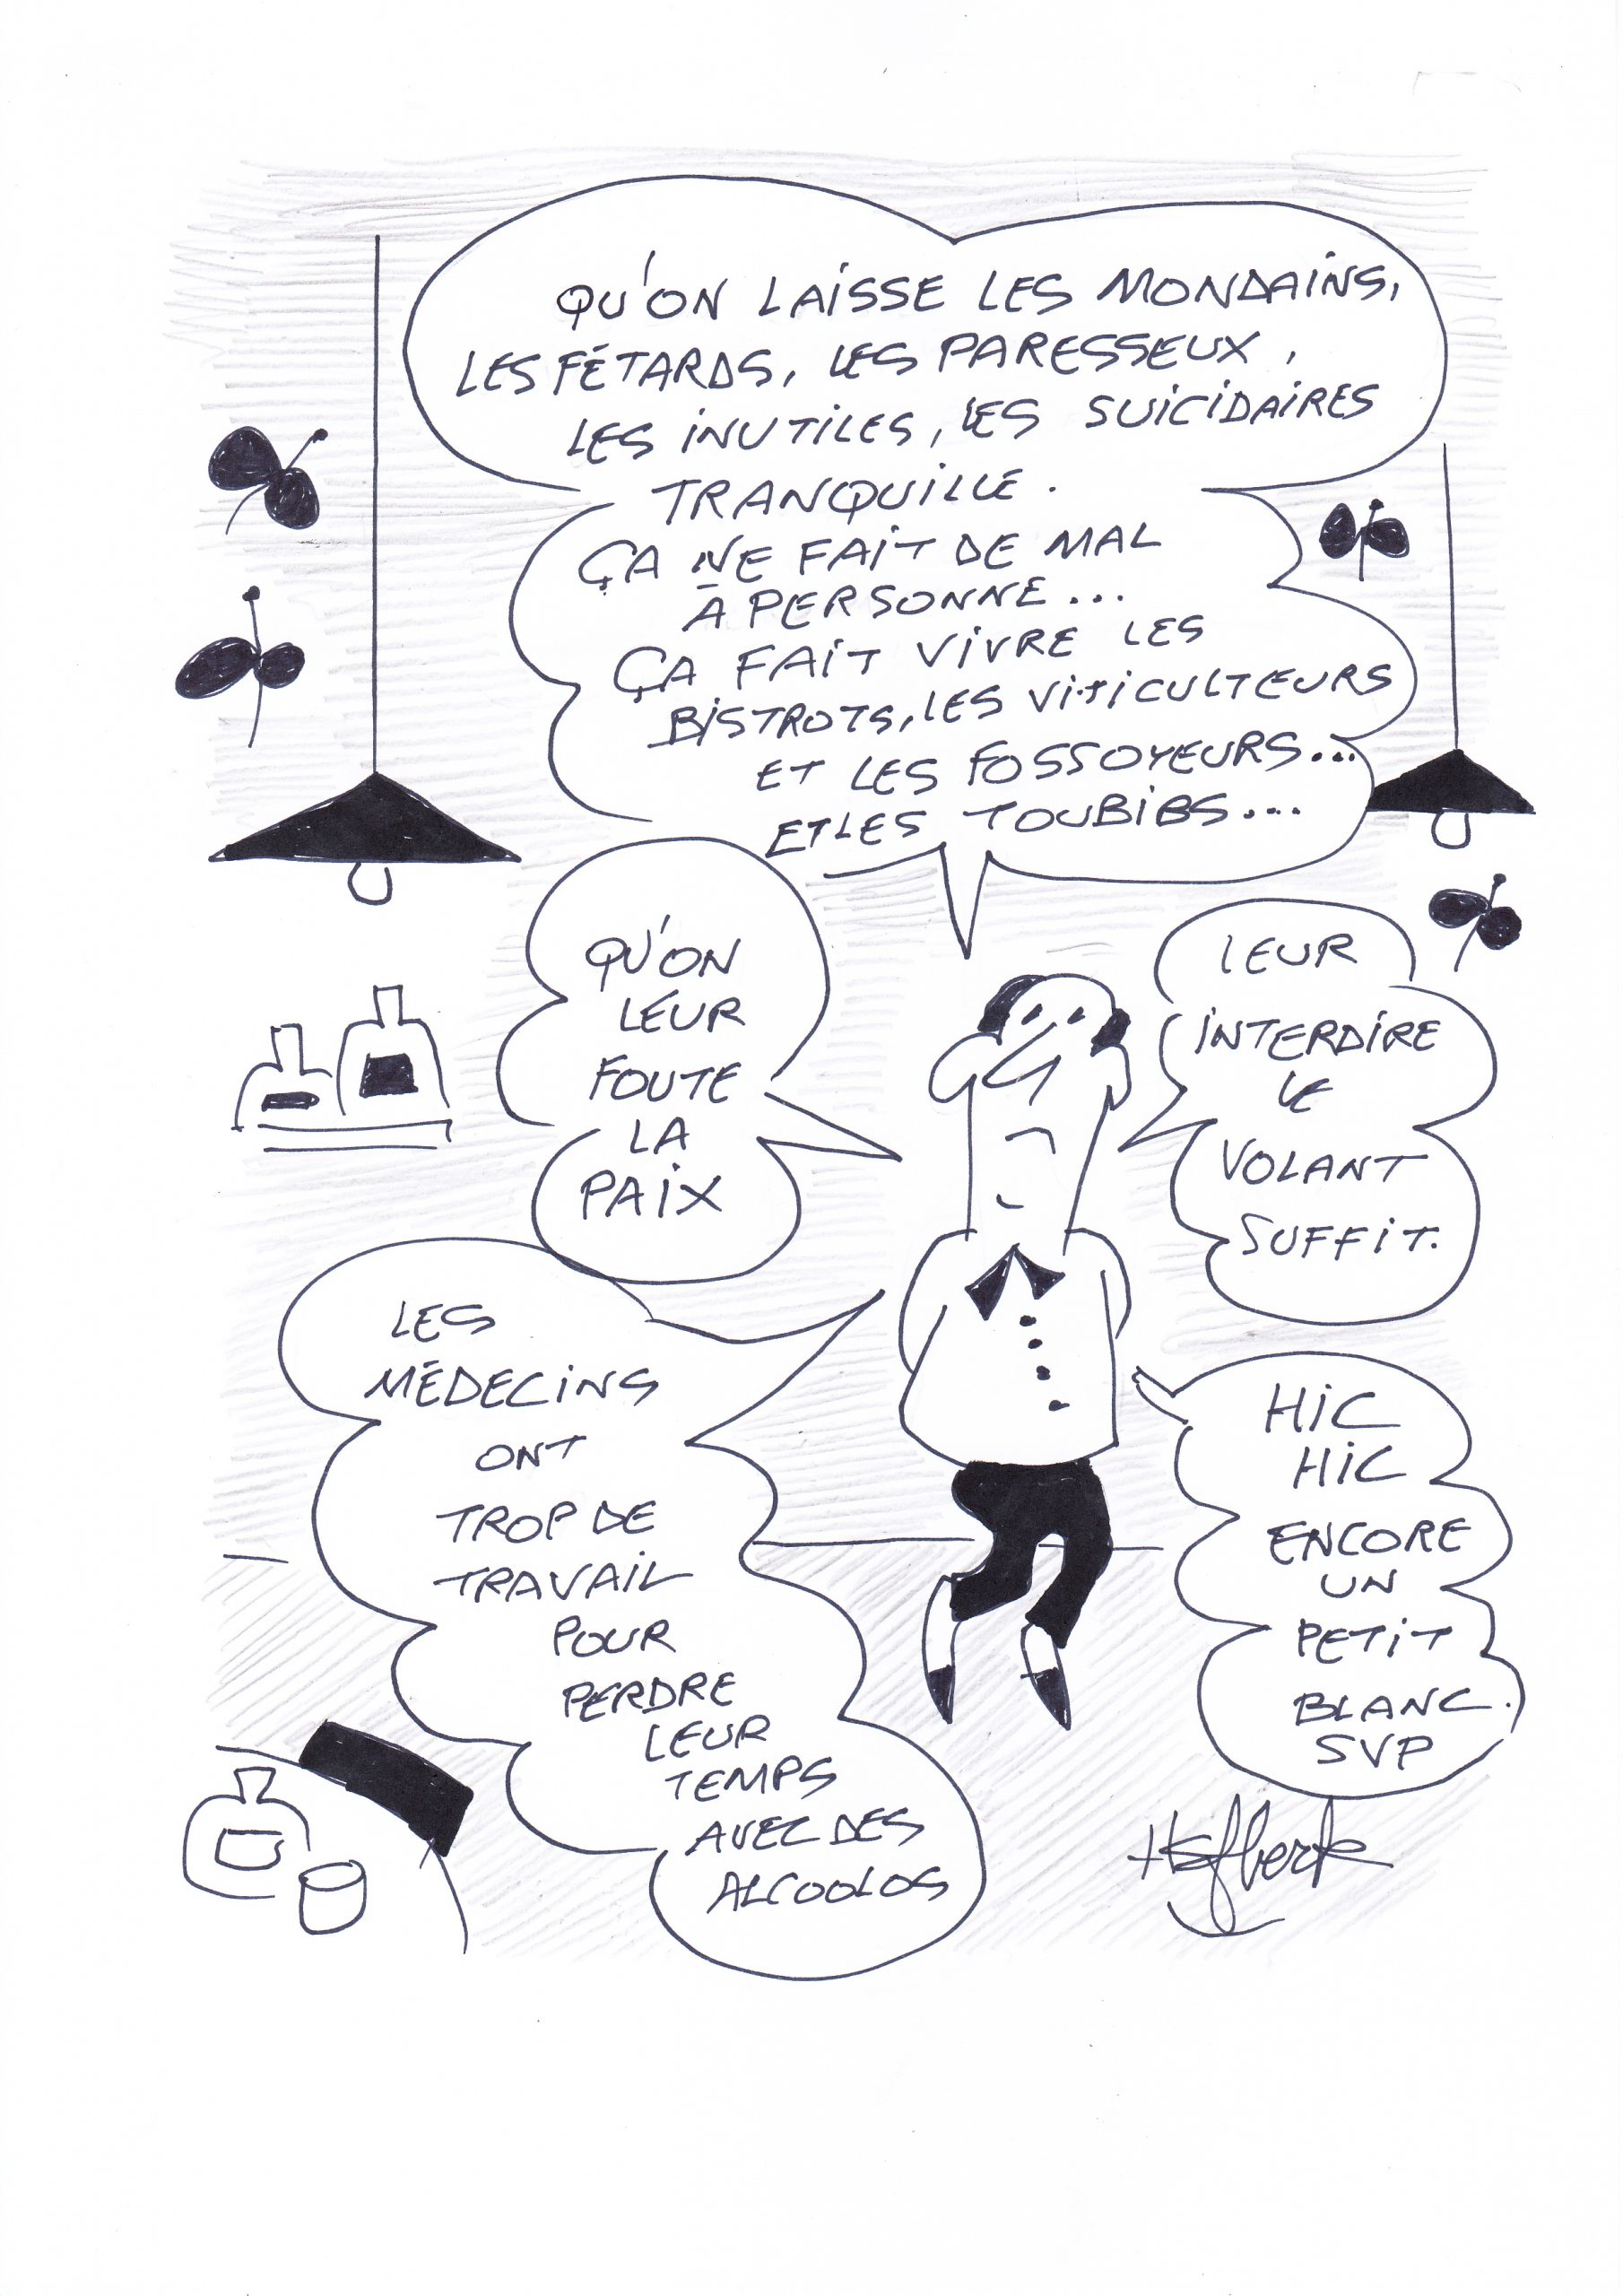 QU'ON LAISSE LES MONDAINS,
LES FÊTARDS, LES PARESSEUX,
LES INUTILES, LES SUICIDAIRES
TRANQUILLE.
ÇA NE FAIT DE MAL
À PERSONNE...
ÇA FAIT VIVRE LES
BISTROTS, LES VITICULTEURS
ET LES FOSSOYEURS...
ET LES TOUBIBS...
QU'ON
LEUR
FOUTE
LA
PAIX
LEUR
INTERDIRE
LE
VOLANT
SUFFIT.
LES
MÉDECINS
ONT
TROP DE
TRAVAIL
POUR
PERDRE
LEUR
TEMPS
AVEC DES
ALCOOLOS
HIC
HIC
ENCORE
UN
PETIT
BLANC.
SVP